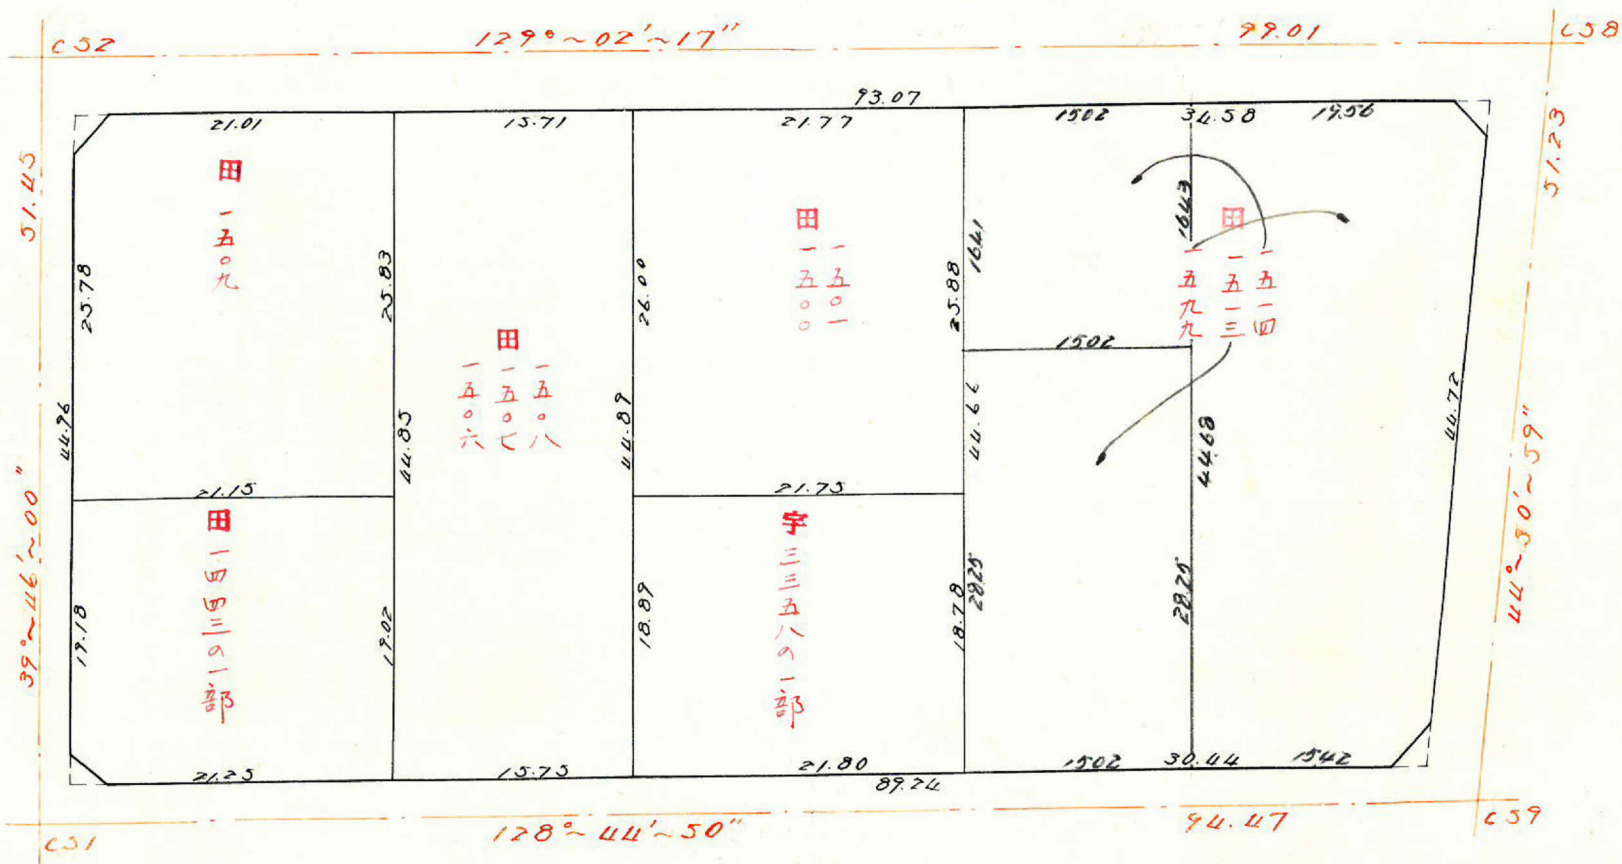 C52
129°~02'~17"
99.01
C58
93.07
21.01
15.71
21.77
1502
34.58
19.56
51.45
51.23
田
一五〇九
25.78
25.83
26.00
田
一五〇一
一五〇〇
1641
25.88
1643
田
一五一四
一五一三
一五九九
田
一五〇八
一五〇七
一五〇六
1502
44.96
44.85
44.89
44.66
4468
44.72
21.15
21.75
39°~46'~00"
44°~30'~59"
田
一四四三の一部
字
三三五八の一部
19.18
19.02
18.89
18.78
2825
2825
21.25
15.75
21.80
1502
30.44
1542
89.24
C51
128°~44'~50"
94.47
C59